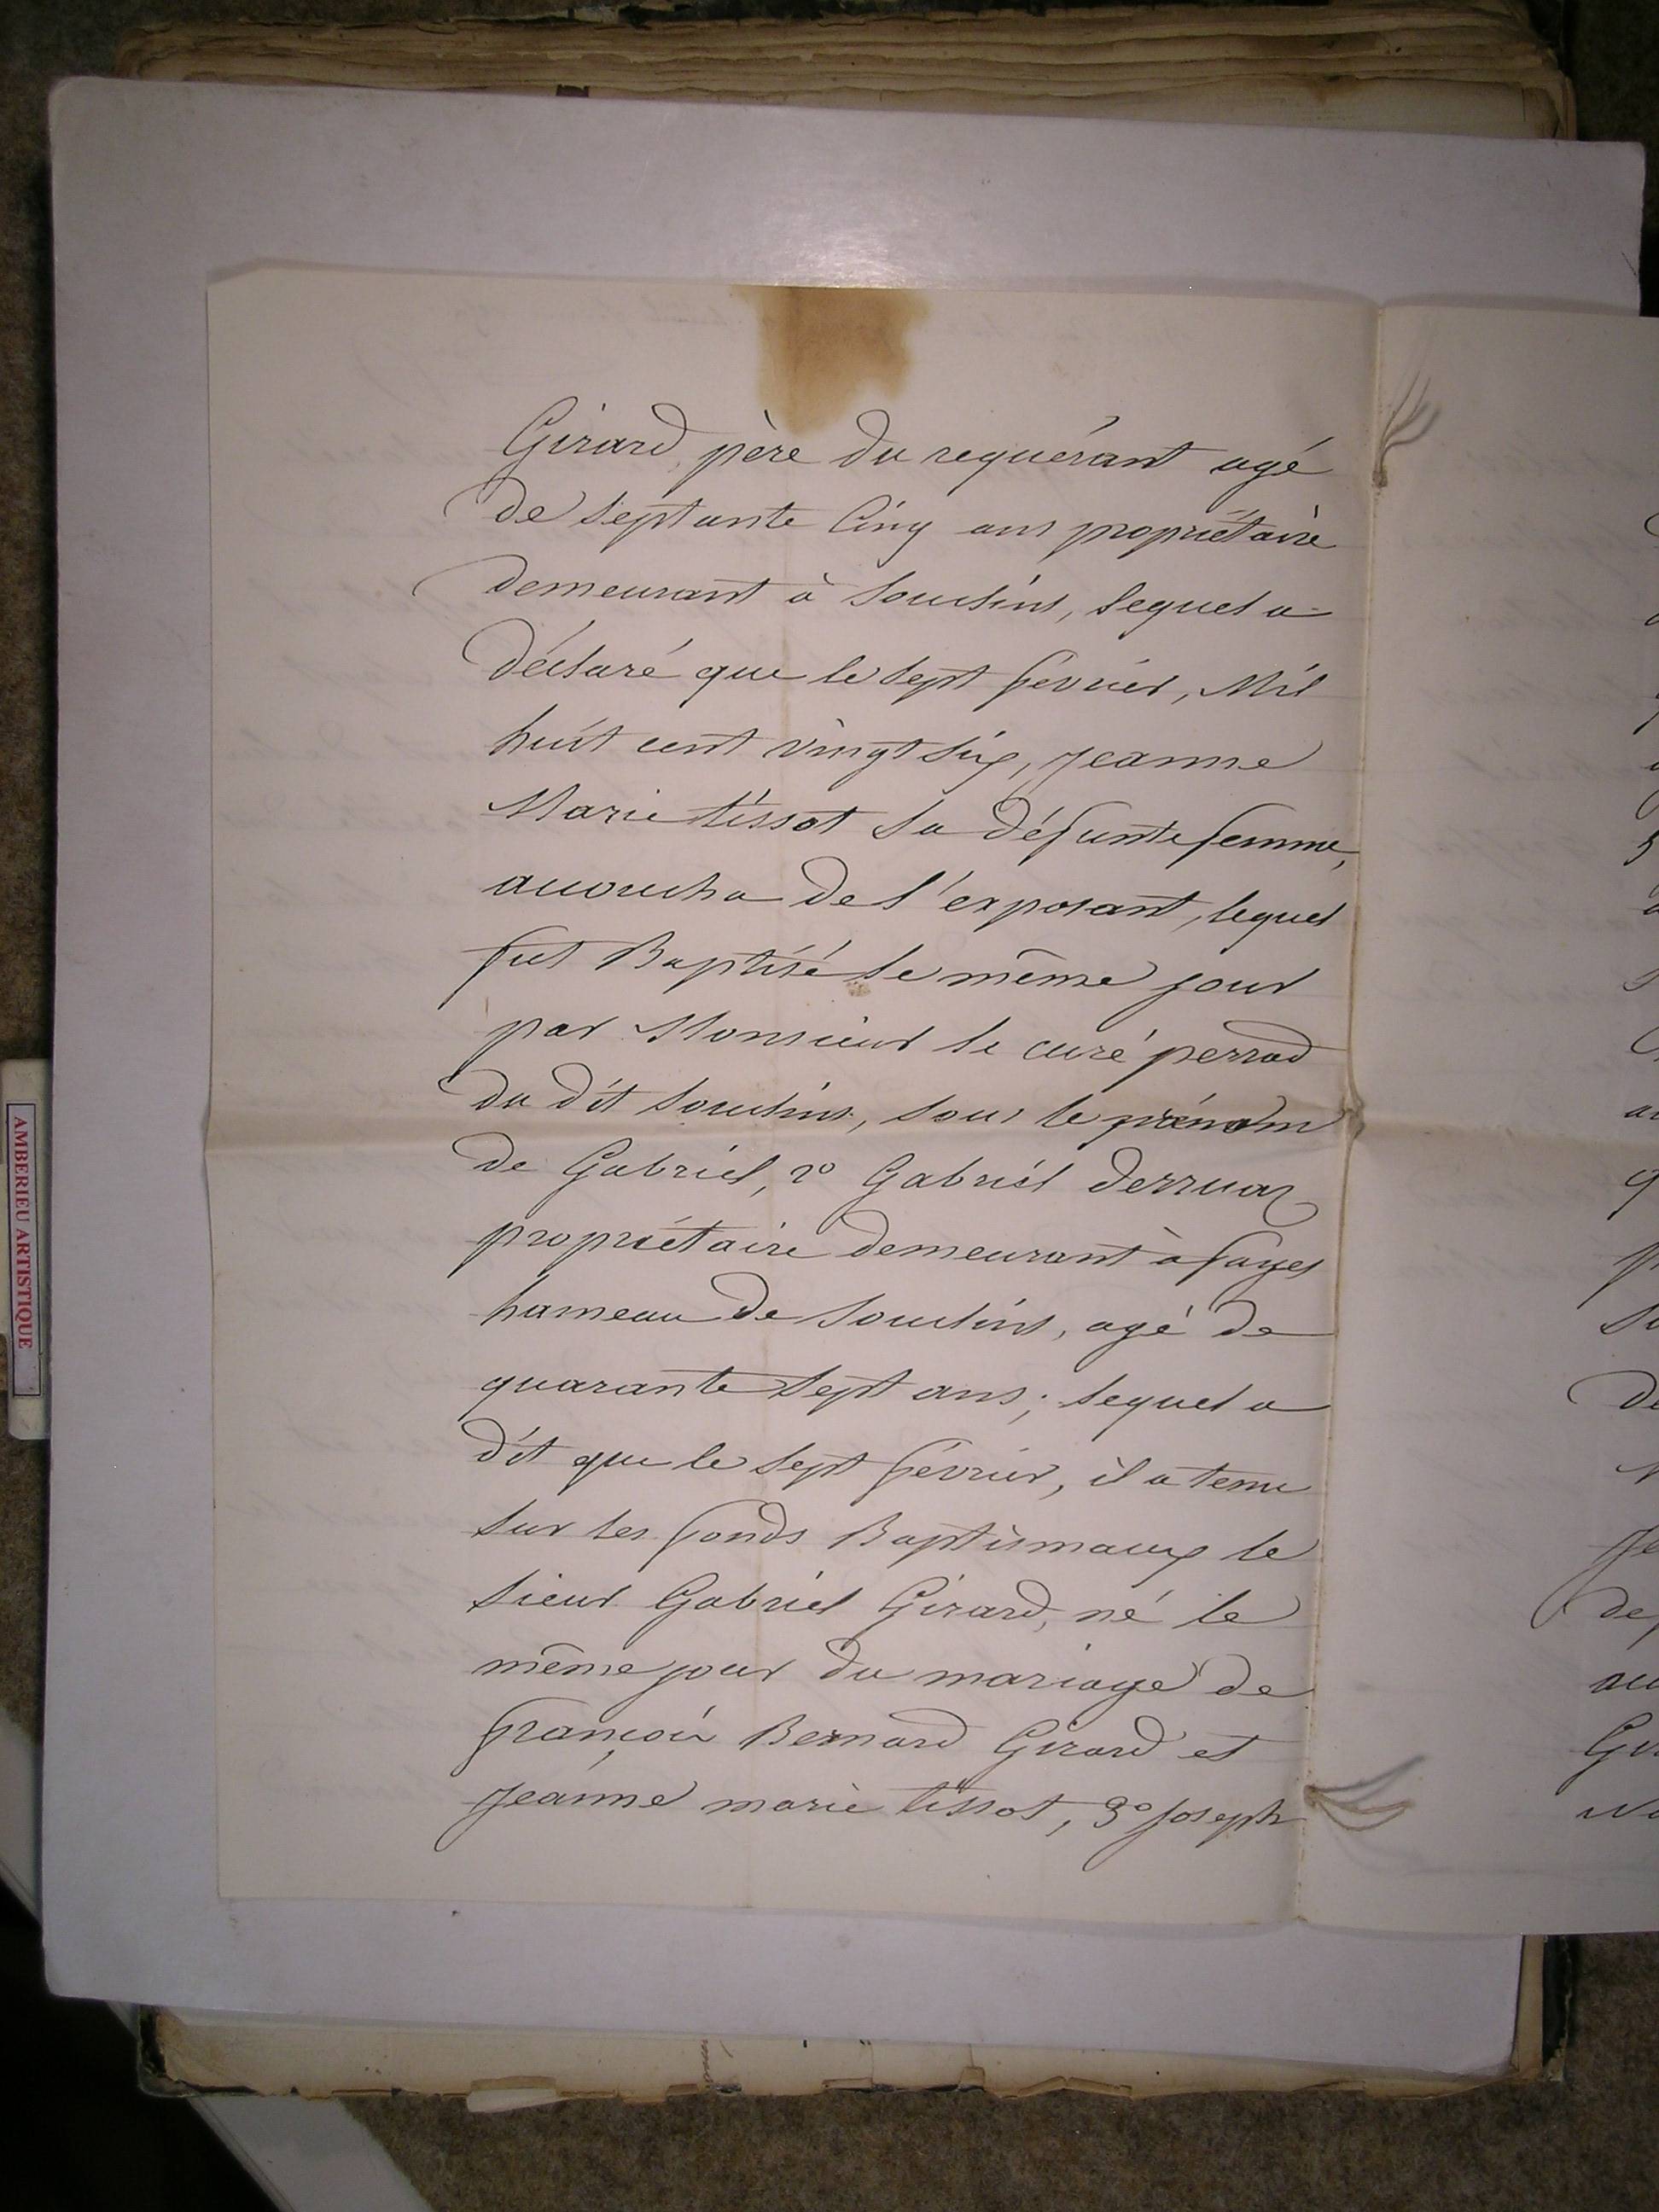 Girard, père du requérant agé
de septante Cinq ans propriétaire
demeurant à Souclins, lequel a
déclaré que le sept février, Mil
huit cent vingt six, jeanne
Marie tissot sa défunte femme,
accoucha de l'exposant, lequel
fut Baptisé le même jour
par Monsieur le curé perrod
du dit Souclins, sous le prénom
de Gabriel, 2° Gabriel derruaz
propriétaire demeurant à fayes
hameau de Souclins, agé de
quarante sept ans; lequel a
dit que le sept février, il a tenu
sur les fonds Baptismaux le
sieur Gabriel Girard, né le
même jour du mariage de
françois Bernard Girard et
jeanne marie tissot, 3° joseph
AMBERIEU ARTISTIQUE